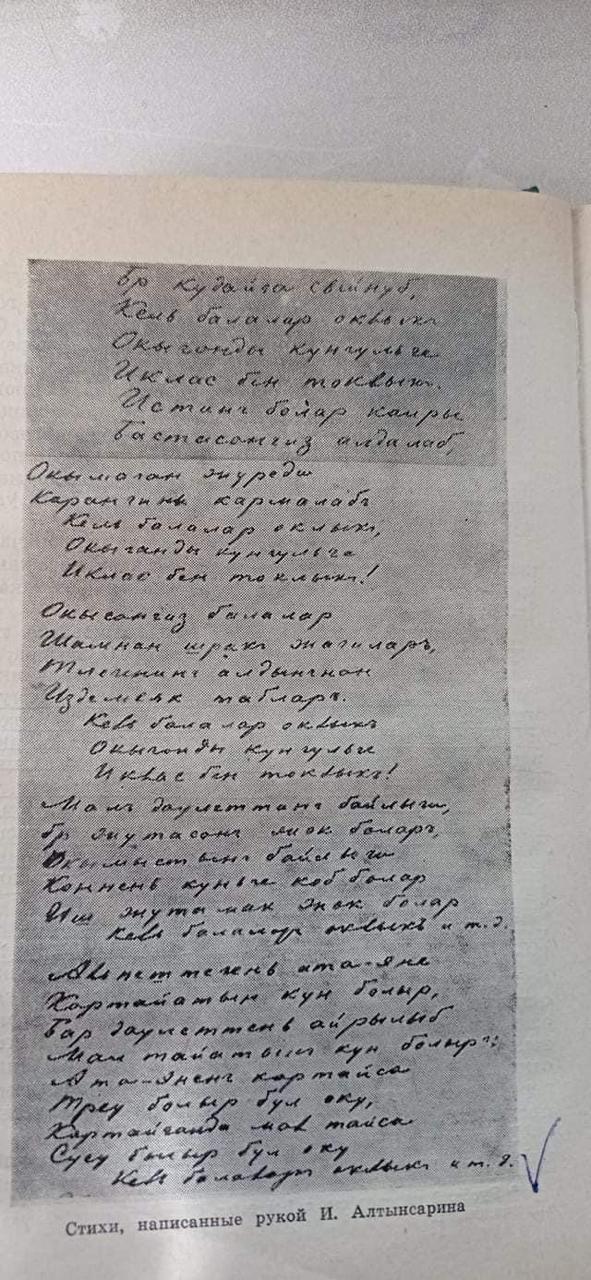 Бр кудайга свйнуб,
Кель балалар оквыкъ
Окыгонды кунгульге
Иклас бен токвыкъ.
Истинг болар каиры
Бастасонгиз алдалаб,
Окымаган журеди
Карангины кармалабъ
Кель балалар оклыкъ,
Окыганды кунгульге
Иклас бен токлыкъ!
Окысонгиз балалар
Шамнан шракъ жагиларъ,
Тлегенинг алдынгнан
Издемвяк табларъ.
Кевь балалар оквыкъ
Окыгонды кунгульге
Иквас бен токвыкъ!
Малъ даулеттинг байлыги,
бр жутасонг жок боларъ,
Окымыстынг байлыги
Коннень куньге коб болар
Иш жутамак жок болар
Кевь балалар оквыкъ и т.д.
Авпеттегень ата-яне
Картайатын кун болыр,
Бар даулеттень айрылыб
Мал тайатын кун болыръ:
Ата-яненг картайса
Треу болыр бул оку,
Картайганда мал тайса
Суеу болыр бул оку
Кевь балалар оквыкъ и т. д.
Стихи, написанные рукой И. Алтынсарина